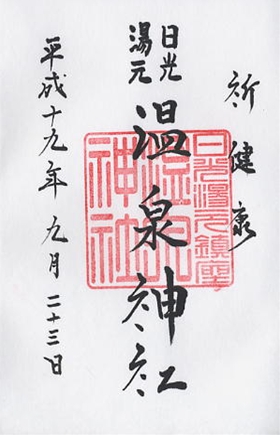 祈健康
日光
湯元
温泉神社
平成十九年九月二十三日
日光湯元鎮座
温泉
神社